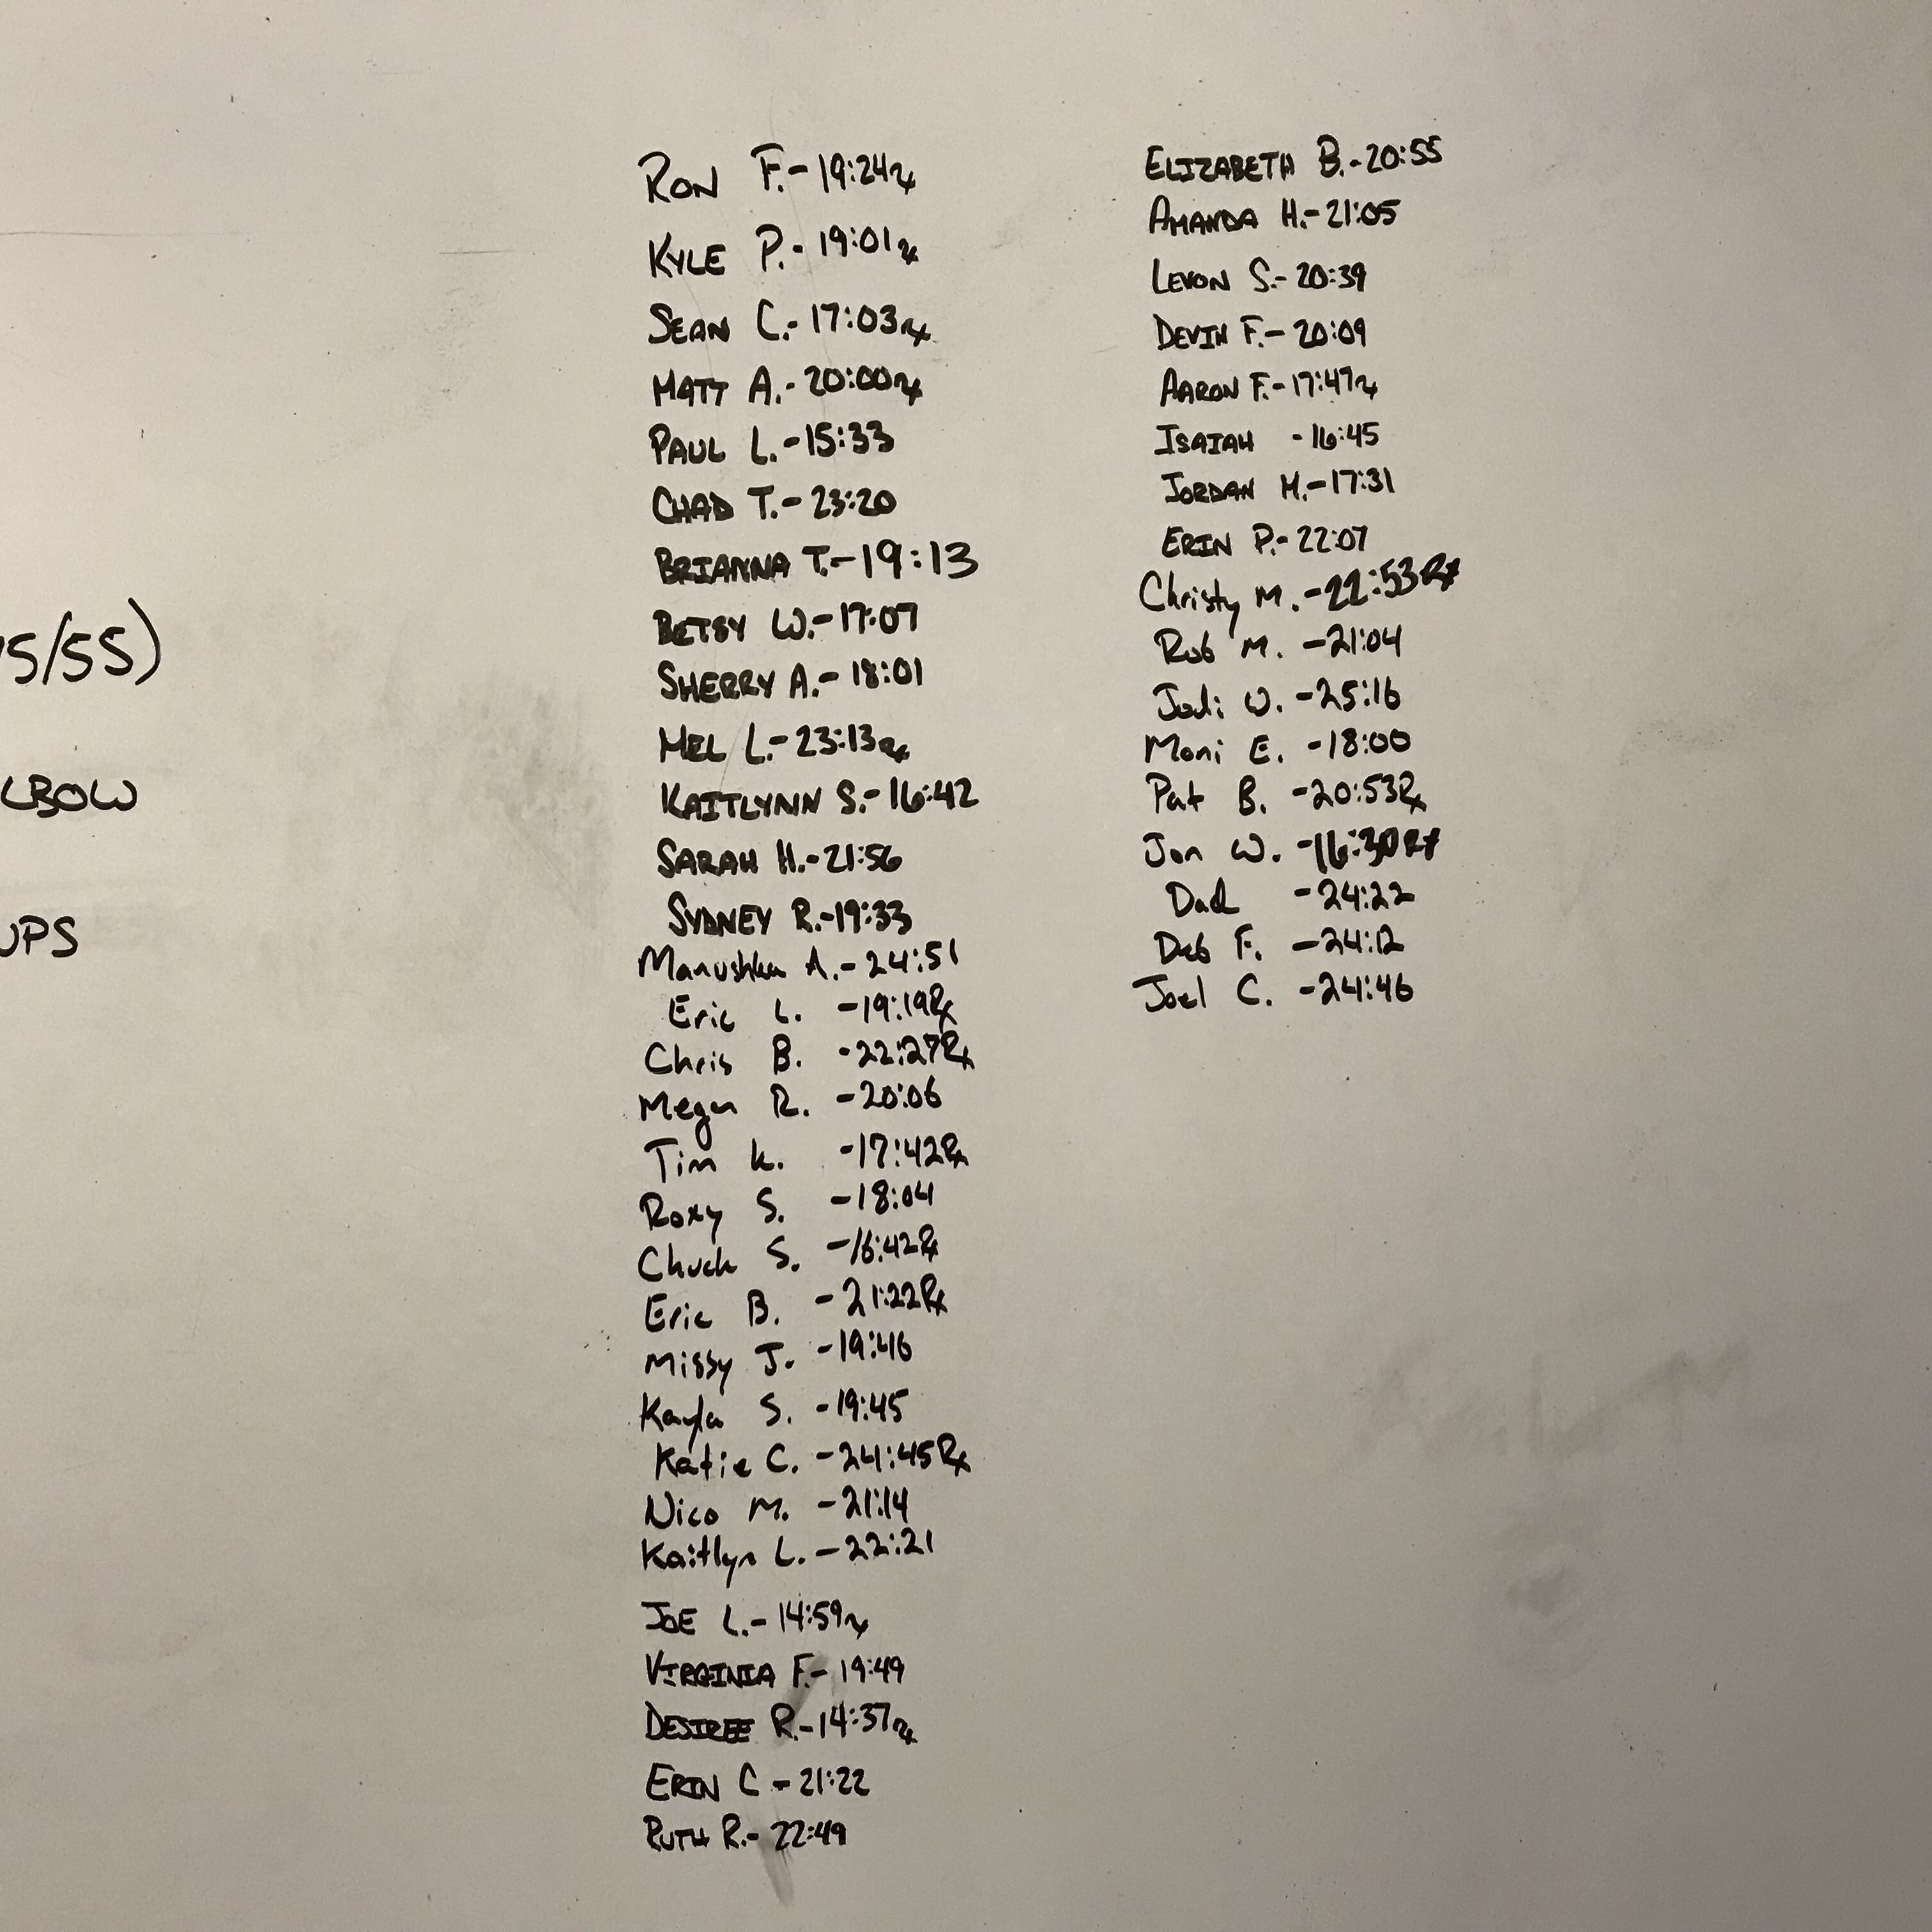 15/55)
LBOW
UPS
RON F.- 19:24 Rx
KYLE P.- 19:01 Rx
SEAN C.- 17:03 Rx
MATT A.- 20:00 Rx
PAUL L.- 15:33
CHAD T.- 23:20
BRIANNA T.- 19:13
BETSY W.- 17:07
SHERRY A.- 18:01
MEL L.- 23:13 Rx
KAITLYNN S.- 16:42
SARAH H.- 21:56
SYDNEY R.- 19:33
Manushka A.- 24:51
Eric L. - 19:19 Rx
Chris B. - 22:27 Rx
Megan R. - 20:06
Tim K. - 17:42 Rx
Roxy S. - 18:04
Chuck S. - 16:42 Rx
Eric B. - 21:22 Rx
Missy J. - 19:46
Kayla S. - 19:45
Katie C. - 24:45 Rx
Nico M. - 21:14
Kaitlyn L. - 22:21
JOE L.- 14:59 Rx
VIRGINIA F.- 19:49
DESIREE R.- 14:37 Rx
ERIN C - 21:22
RUTH R.- 22:49
ELIZABETH B.- 20:55
AMANDA H.- 21:05
LEVON S.- 20:39
DEVIN F.- 20:09
AARON F.- 17:47 Rx
ISAIAH - 16:45
JORDAN M.- 17:31
ERIN P.- 22:07
Christy M. - 22:53 Rx
Rob M. - 21:04
Jodi W. - 25:16
Moni E. - 18:00
Pat B. - 20:53 Rx
Jon W. - 16:30 Rx
Dad - 24:22
Deb F. - 24:12
Joel C. - 24:46